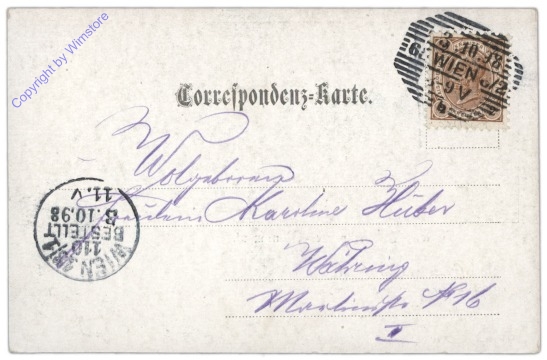 Copyright by Wimstore
3.10.98
WIEN
9V
Correspondenz-Karte.
Wolgeboren
Fräulein Karoline Huber
Währing
Martinstr № 16
I
WIEN
110
BESTELLT
8.10.98
11.V